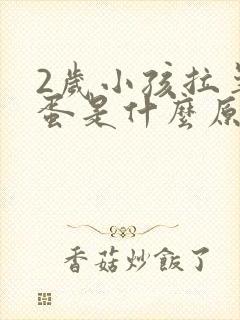 2歲小孩拉
蛋是什麼原
香菇炒飯了